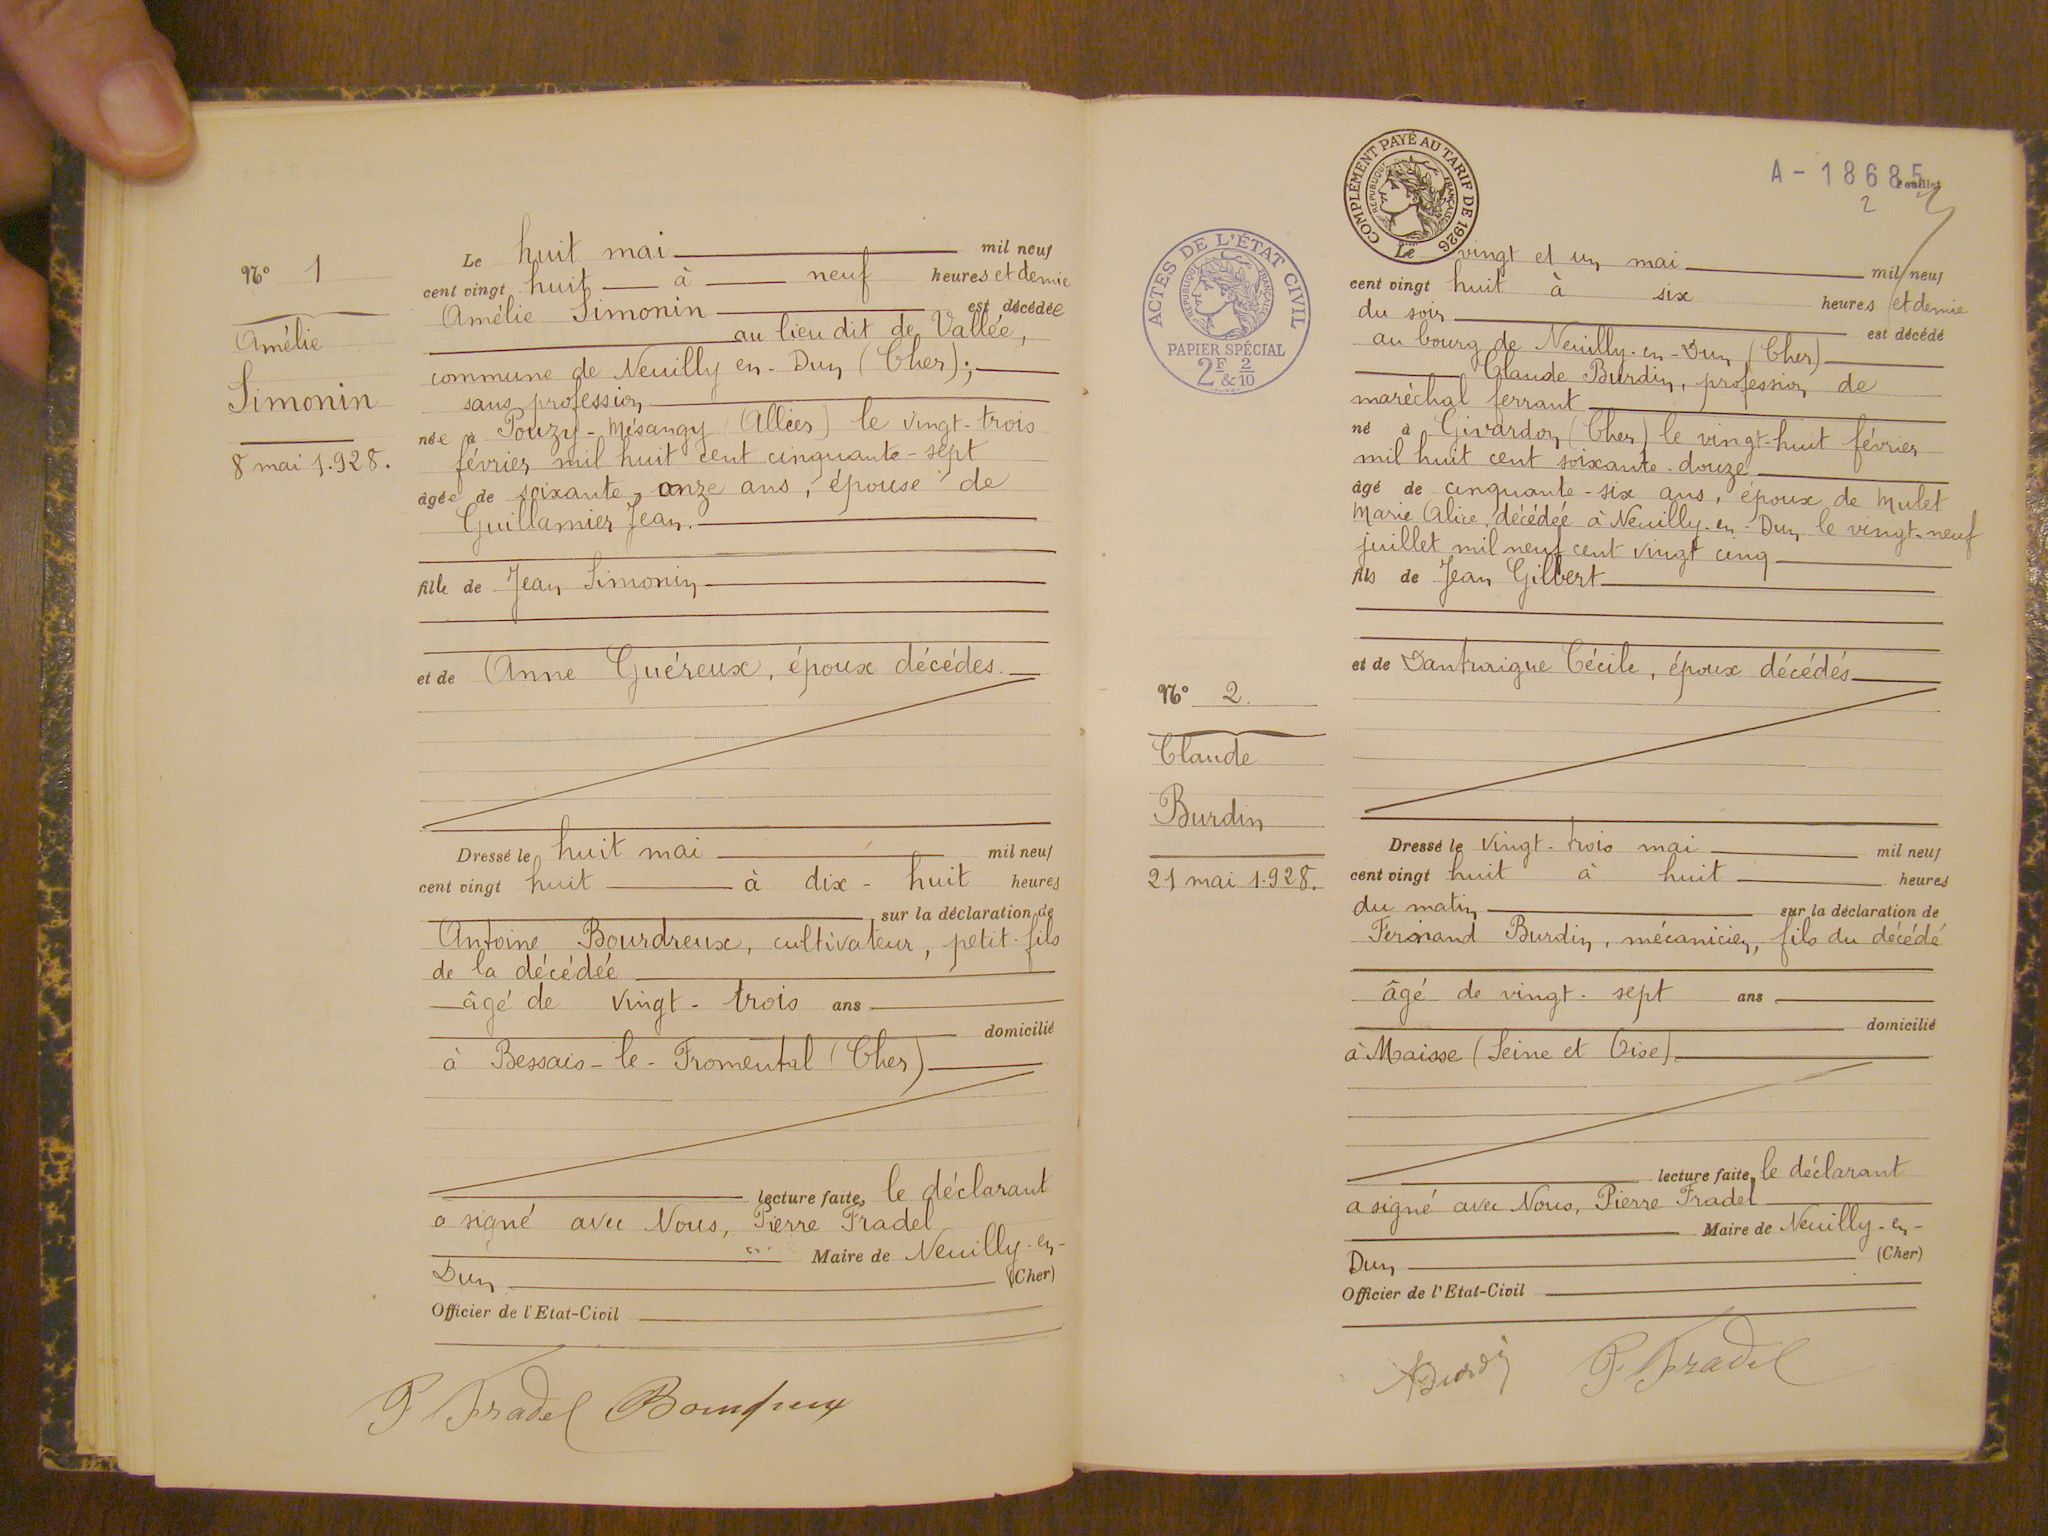 N° 1
Amélie
Simonin
8 mai 1.928.
Le huit mai mil neuf
cent vingt huit à neuf heures et demie
Amélie Simonin est décédée
au lieu dit de Vallée,
commune de Neuilly en-Dun (Cher);
sans profession
née à Pouzy-Mésangy (Allier) le vingt-trois
février mil huit cent cinquante-sept
âgée de soixante-onze ans, épouse de
Guillamier Jean.
fille de Jean Simonin
et de Anne Guéreux, époux décédés.
Dressé le huit mai mil neuf
cent vingt huit à dix-huit heures
sur la déclaration de
Antoine Bourdreux, cultivateur, petit-fils
de la décédée
âgé de vingt-trois ans
domicilié
à Bessais-le-Fromental (Cher)
lecture faite, le déclarant
a signé avec Nous, Pierre Fradel
Maire de Neuilly-en-
Dun (Cher)
Officier de l'Etat-Civil
P Fradel Bourdreux
COMPLÉMENT PAYÉ AU TARIF DE 1926
RÉPUBLIQUE FRANÇAISE
A-18685
Feuillet
2
ACTES DE L'ÉTAT CIVIL
RÉPUBLIQUE FRANÇAISE
PAPIER SPÉCIAL
2F & 2/10
N° 2.
Claude
Burdin
21 mai 1.928.
Le vingt et un mai mil neuf
cent vingt huit à six heures et demie
du soir est décédé
au bourg de Neuilly-en-Dun (Cher)
Claude Burdin, profession de
maréchal ferrant
né à Givardon (Cher) le vingt-huit février
mil huit cent soixante-douze
âgé de cinquante-six ans, époux de Mulet
Marie Alice, décédée à Neuilly-en-Dun le vingt-neuf
juillet mil neuf cent vingt cinq
fils de Jean Gilbert
et de Dantraigue Cécile, époux décédés
Dressé le vingt-trois mai mil neuf
cent vingt huit à huit heures
du matin sur la déclaration de
Fernand Burdin, mécanicien, fils du décédé
âgé de vingt-sept ans
domicilié
à Maisse (Seine et Oise)
lecture faite, le déclarant
a signé avec Nous, Pierre Fradel
Maire de Neuilly-en-
Dun (Cher)
Officier de l'Etat-Civil
Burdin P Fradel